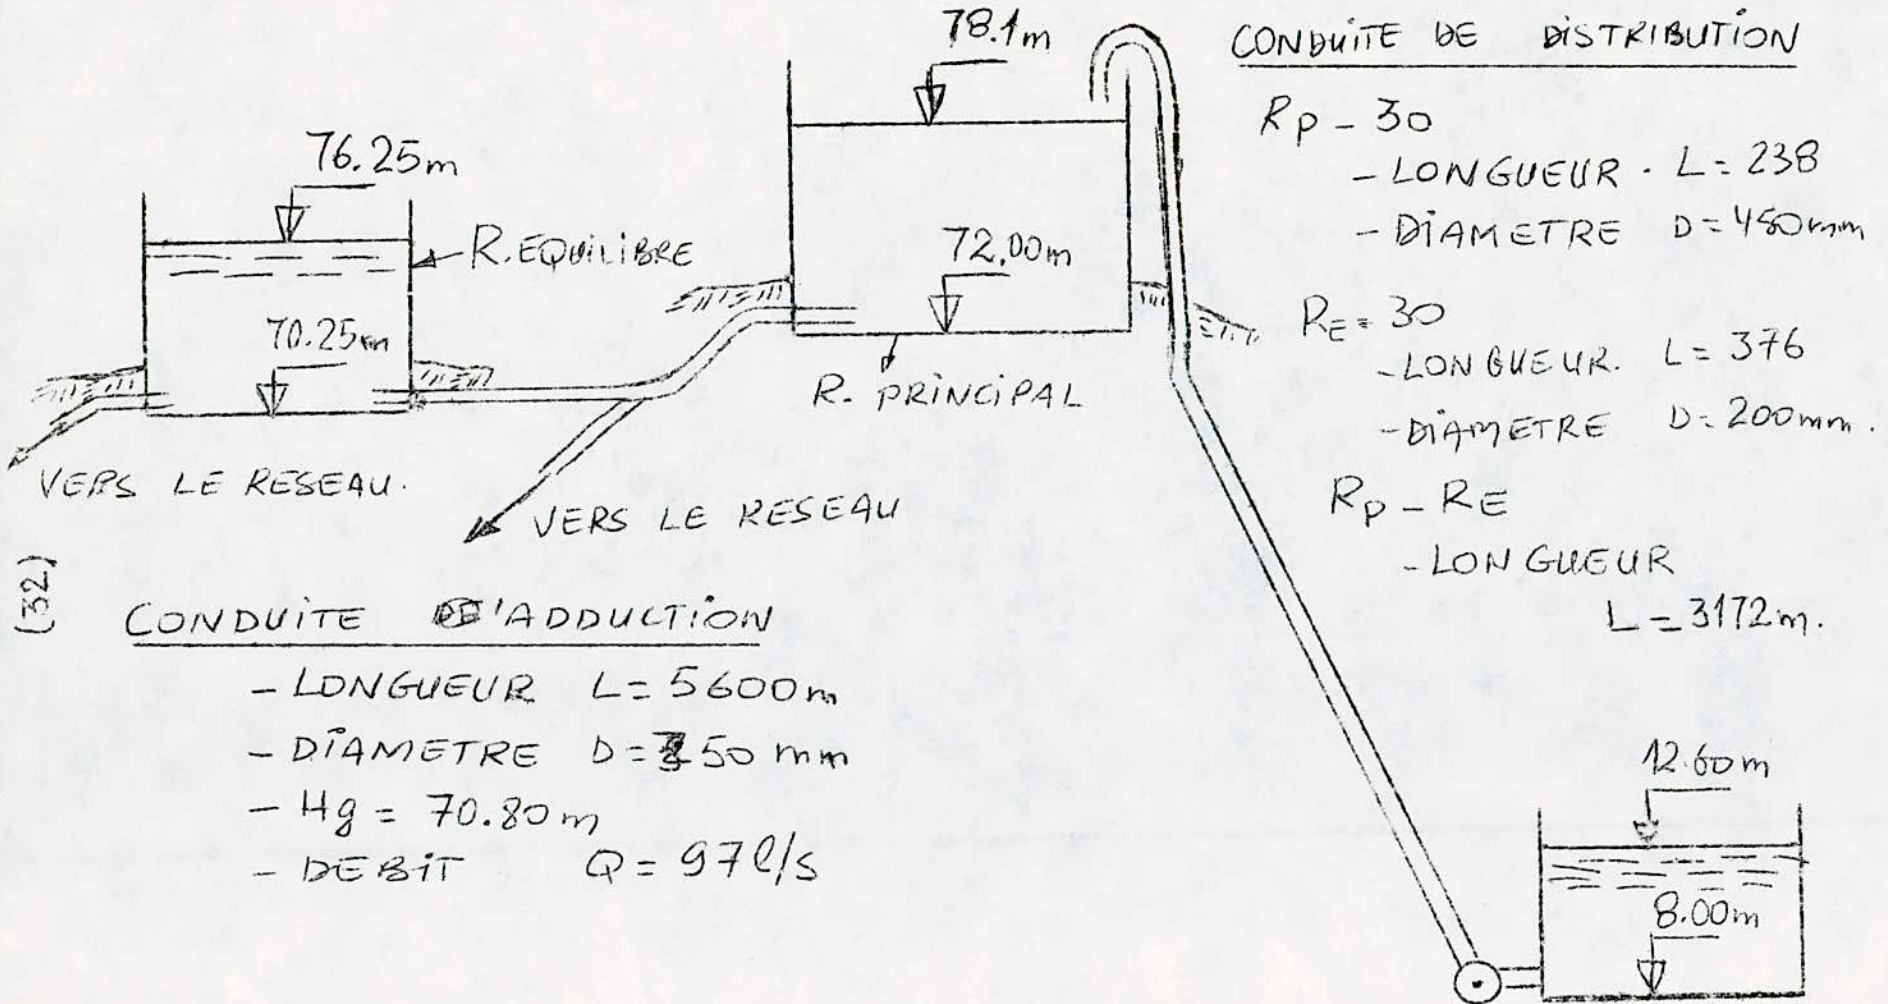 78.1m
76.25m
R. EQUILIBRE
70.25m
72.00m
R. PRINCIPAL
VERS LE RESEAU.
VERS LE RESEAU
CONDUITE DE DISTRIBUTION
Rp - 30
- LONGUEUR . L = 238
- DIAMETRE D = 450mm
RE = 30
- LONGUEUR. L = 376
- DIAMETRE D = 200mm.
Rp - RE
- LONGUEUR
L = 3172m.
(32)
CONDUITE D'ADDUCTION
- LONGUEUR L = 5600m
- DIAMETRE D = 350 mm
- Hg = 70.80m
- DEBIT Q = 97l/s
12.60m
8.00m